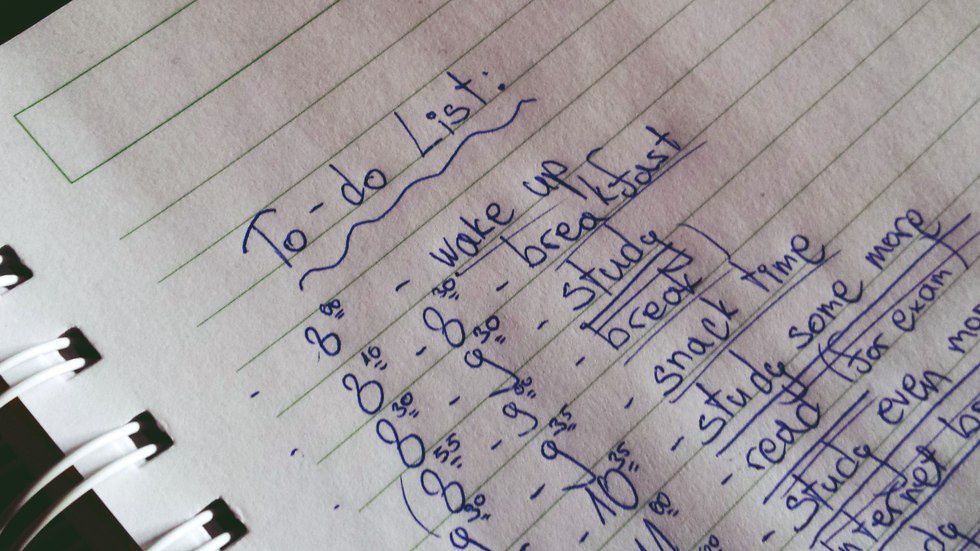 To-do List:
8⁰⁰ - wake up
8¹⁰ - 8³⁰ - breakfast
8³⁰ - 9³⁰ - study
(8⁵⁵ - 9⁰⁰ - break)
9³⁰ - 9³⁵ - snack time
- 10³⁵ - study some more
11⁰⁰ - read (for exam)
- study even mor